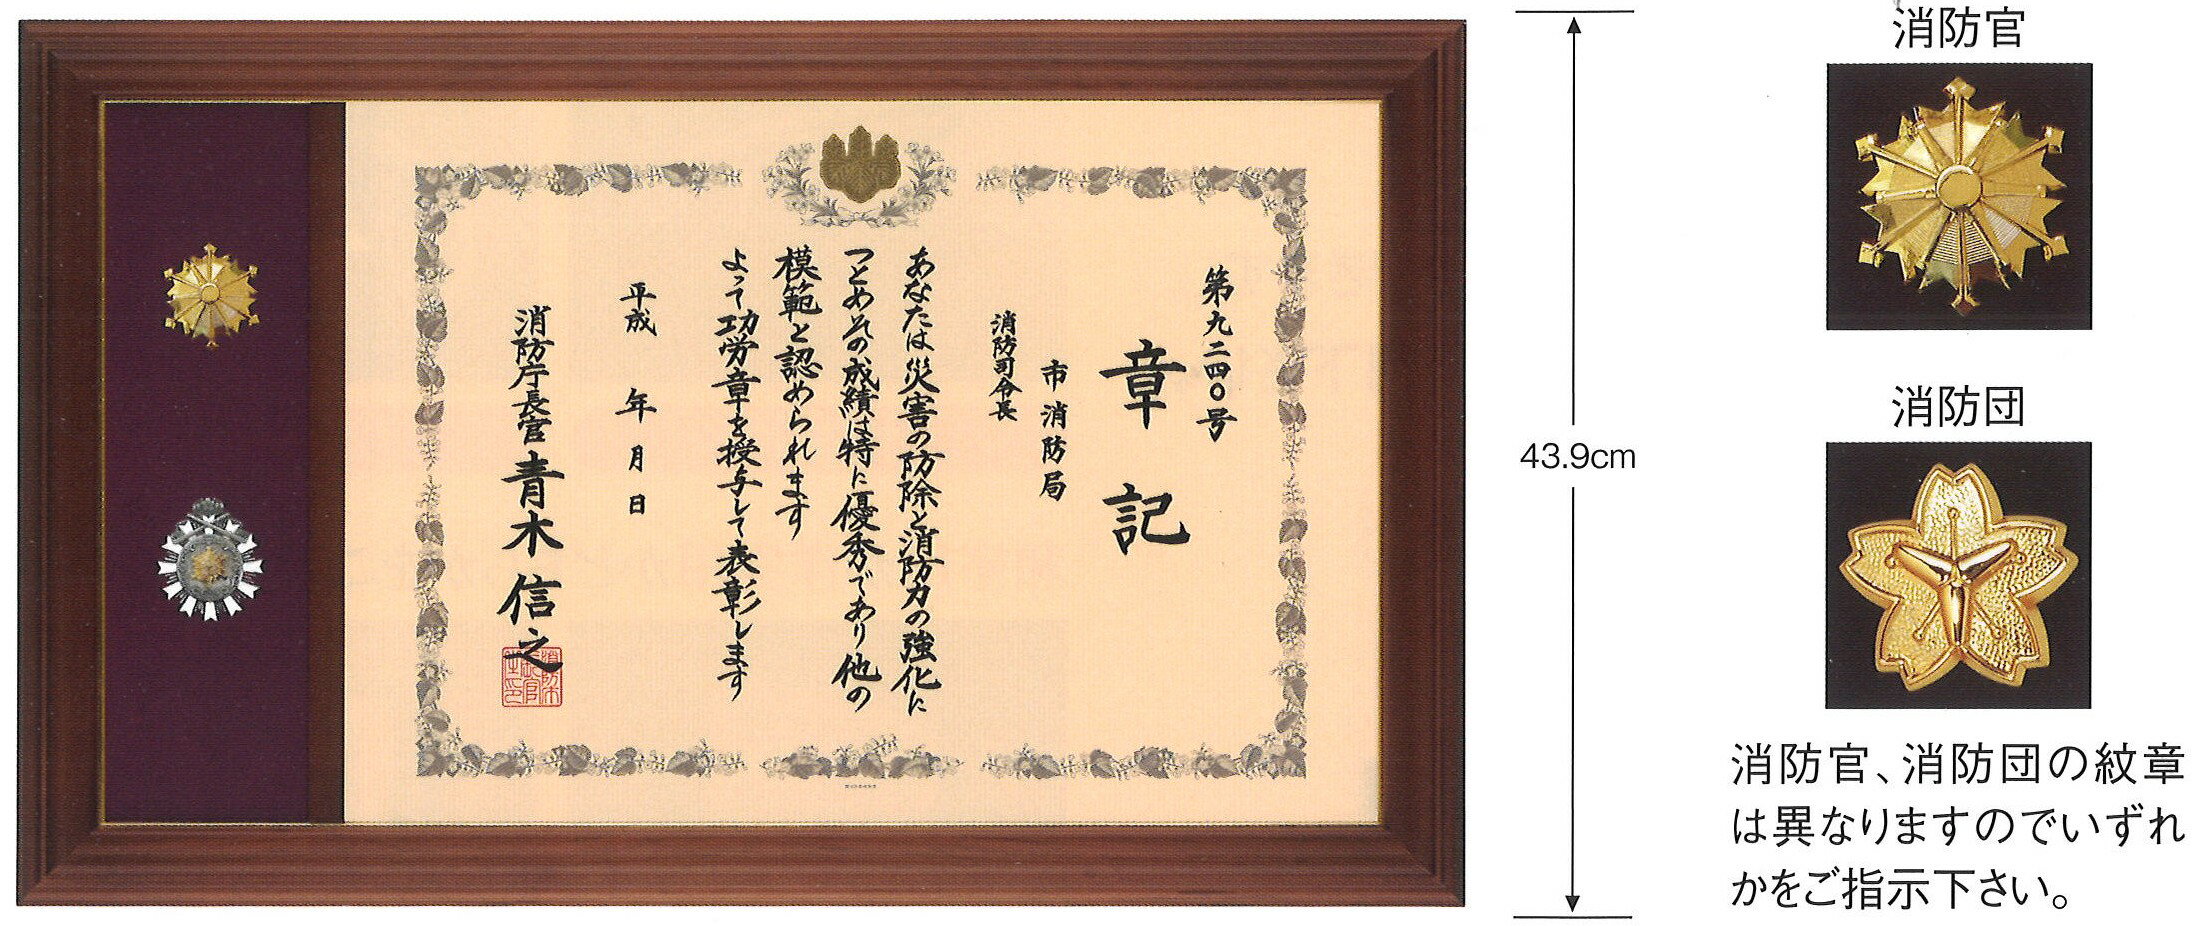 第九二四〇号
章記
市消防局
消防司令長
あなたは災害の防除と消防力の強化に
つとめその成績は特に優秀であり他の
模範と認められます
よって功労章を授与して表彰します
平成　年　月　日
消防庁長官 青木信之
43.9cm
消防官
消防団
消防官、消防団の紋章
は異なりますのでいずれ
かをご指示下さい。